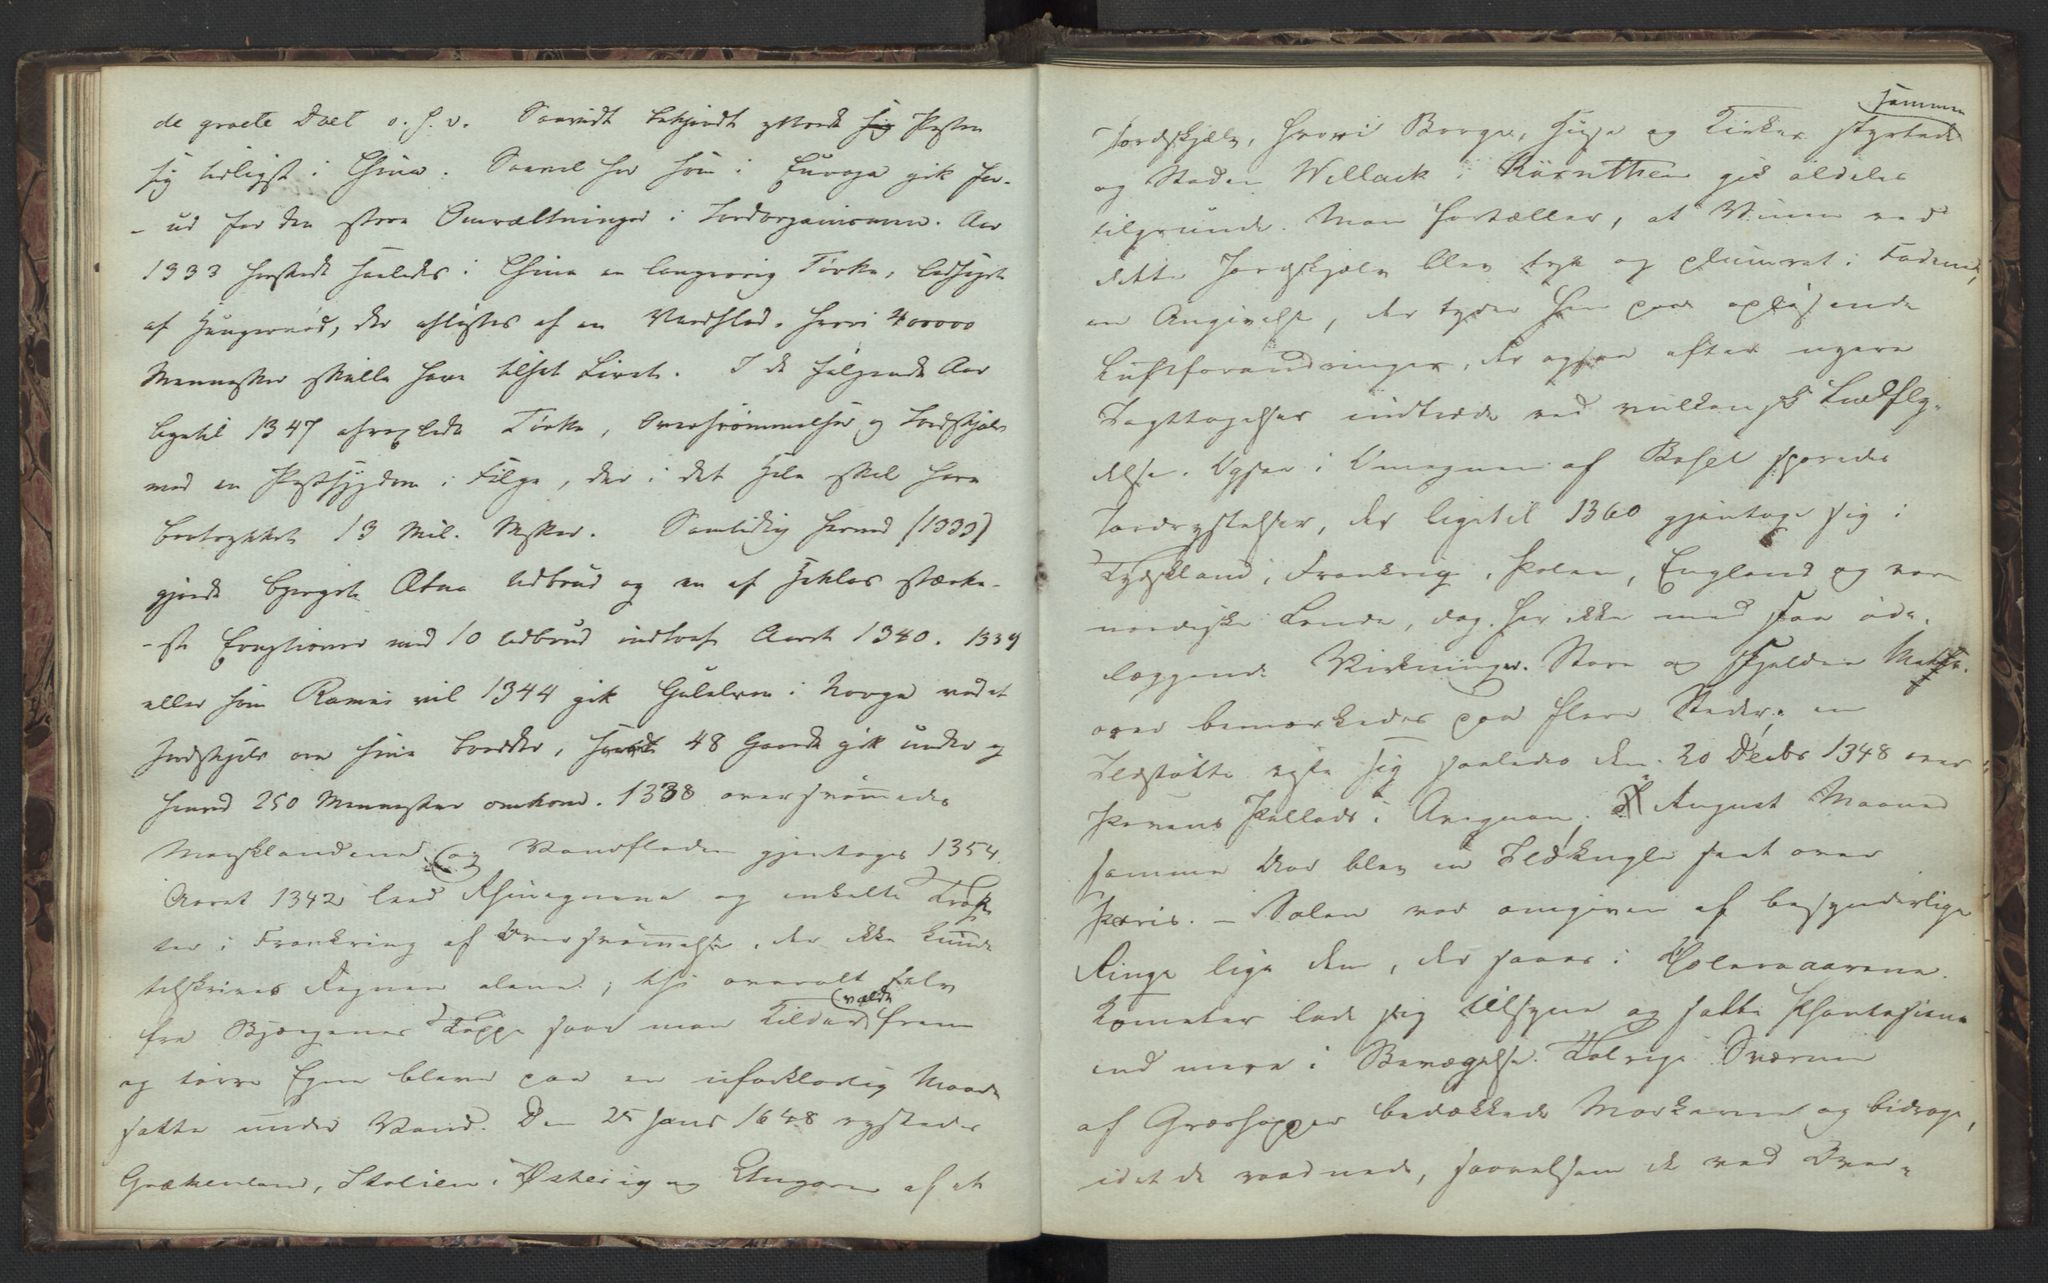 de groete Doet o. s. v. Saavidt bekjendt yttrede sig Pesten
sig tidligst i China. Saavel her som i Europa gik for-
- ud for den store Omvæltninger i Jordorganismen. Aar
1333 herskede saaledes i China en langvarig Tørke, ledsaget
af Hungersnød, der afløstes af en Vandflod, hvori 400000
Mennesker skulle have tilsat Livet. I de følgende Aar
ligetil 1347 afvexlede Tørke, Oversvømmelser og Jordskjælv
med en Pestsygdom i Følge, der i det Hele skal have
bortrykket 13 Mil. Mskr. Samtidig hermed (1333)
gjorde Bjerget Ætna Udbrud og en af Heklas stærke-
- ste Eruptioner med 10 Udbrud indtraf Aaret 1340. 1339
eller som Ramus vil 1344 gik Gulelven i Norge ved et
Jordskjælv over sine Bredder, hvorved 48 Gaarde gik under og
hvorved 250 Mennesker omkom. 1338 oversvømmedes
Marsklandene og Vandfloden gjentoges 1354.
Aaret 1342 leed Rhinegnene og enkelte Trak
ter i Frankrig af Oversvømmelse, der ikke kunde
tilskrives Regnen alene; thi overalt selv
fra Bjergenes Toppe saae man Kilder vælde frem
og tørre Egne bleve paa en uforklarlig Maade
satte under Vand. Den 25 Janr 1648 rystedes
Grækenland, Italien, Østerig og Ungarn af et
Jordskjælv, hvori Borge, Huse og Kirker styrtede sammen
og Staden Villach i Kärnthen gik aldeles
tilgrunde. Man fortæller, at Vinen ved
dette Jordskjælv blev tyk og plumret i Fadene,
en Angivelse, der tyder hen paa opløsende
Luftforandringer, der ogsaa efter nyere
Iagttagelser indtræde ved vulkansk Ludfly-
delse. Ogsaa i Omegnen af Basel sporedes
Jordrystelser, der ligetil 1360 gjentoge sig i
Tydskland, Frankrig, Polen, England og vore
nordiske Lande, dog her ikke med saa øde-
læggende Virkninger. Store og sjeldne Mete-
orer bemærkedes paa flere Steder, en
Ildstøtte viste sig saaledes den 20 Decbr 1348 over
Pavens Pallads i Avignon, i August Maaned
samme Aar blev en Ildkugle seet over
Paris. - Solen var omgiven af besynderlige
Ringe lige dem, der saaes i Koleraaarene.
Kometer lod sig tilsyne og satte Phantasien
end mere i Bevægelse. Talrige Sværme
af Græshopper bedækkede Markerne og bidroge,
idet de raadnede, saavelsom de ved Over-